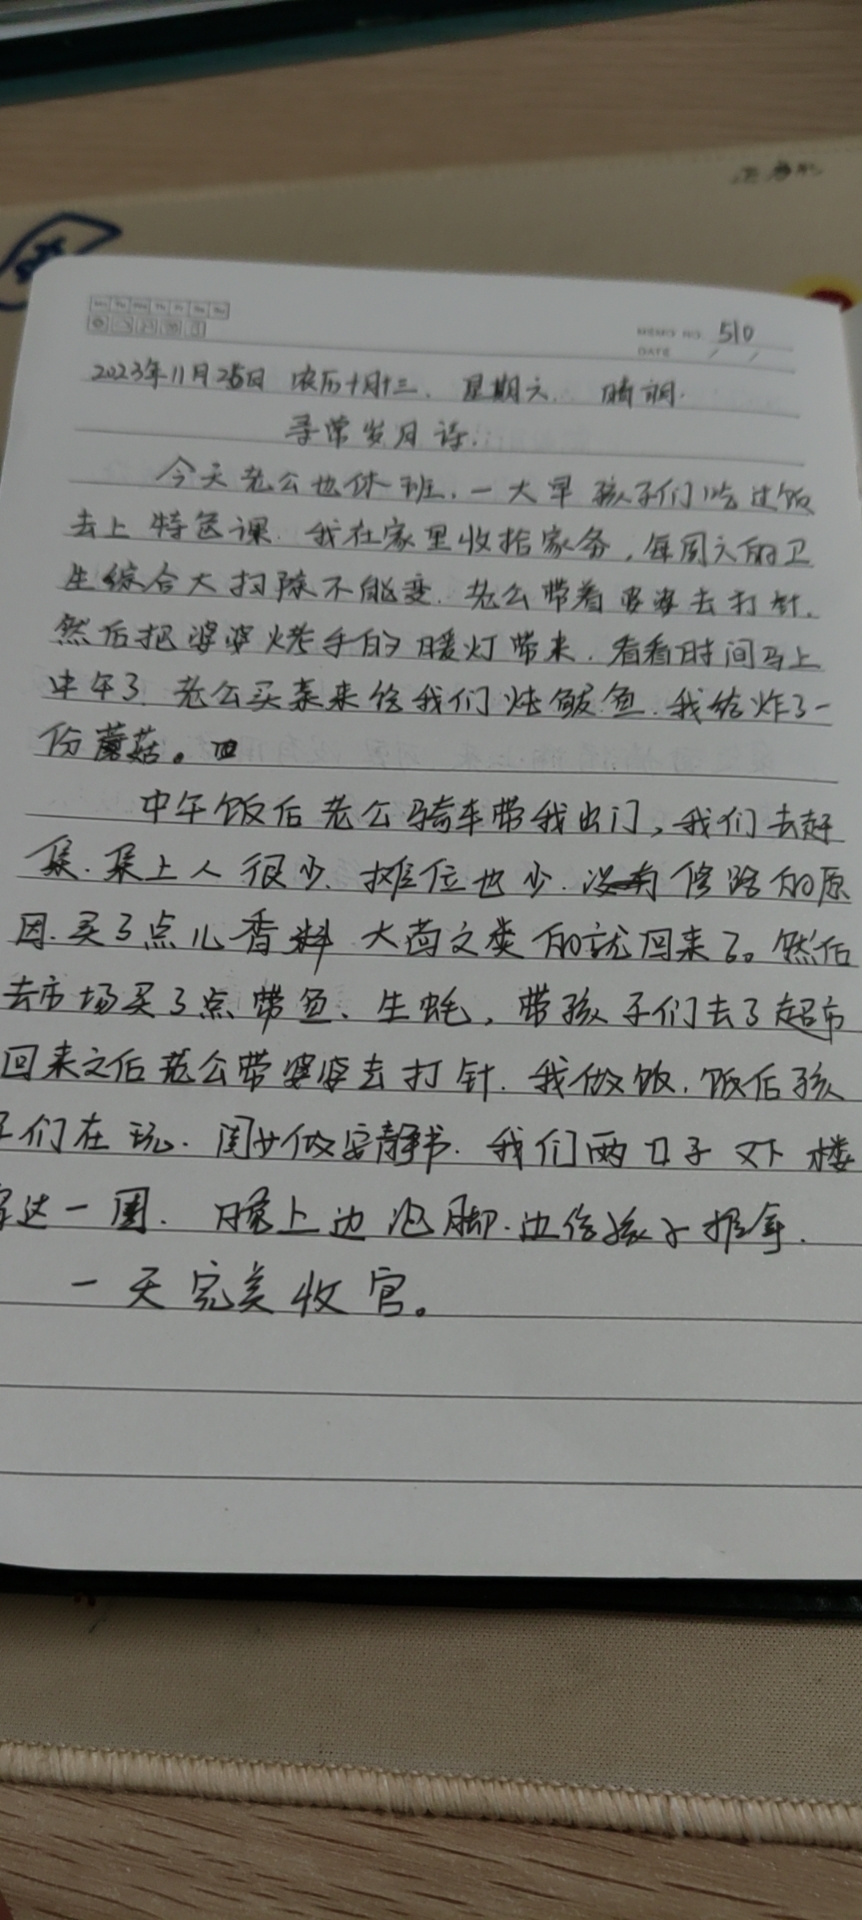 MEMO NO. 510
DATE / /
2023年11月25日 农历十月十三. 星期六. 晴朗.
寻常岁月诗.
今天老公也休班.一大早孩子们吃过饭
去上特色课.我在家里收拾家务,每周六的卫
生综合大扫除不能变.老公带着婆婆去打针.
然后把婆婆烤手的暖灯带来.看看时间马上
中午了.老公买菜来给我们炖鲅鱼.我给炸了一
份蘑菇。
中午饭后老公骑车带我出门,我们去赶
集.集上人很少.摊位也少.修路的原
因.买了点儿香料 大茴之类的就回来了。然后
去市场买了点带鱼、生蚝,带孩子们去了超市
回来之后老公带婆婆去打针.我做饭.饭后孩
子们在玩.闺女做安静书.我们两口子又下楼
达一圈.晚上边泡脚.边给孩子推拿.
一天完美收官。